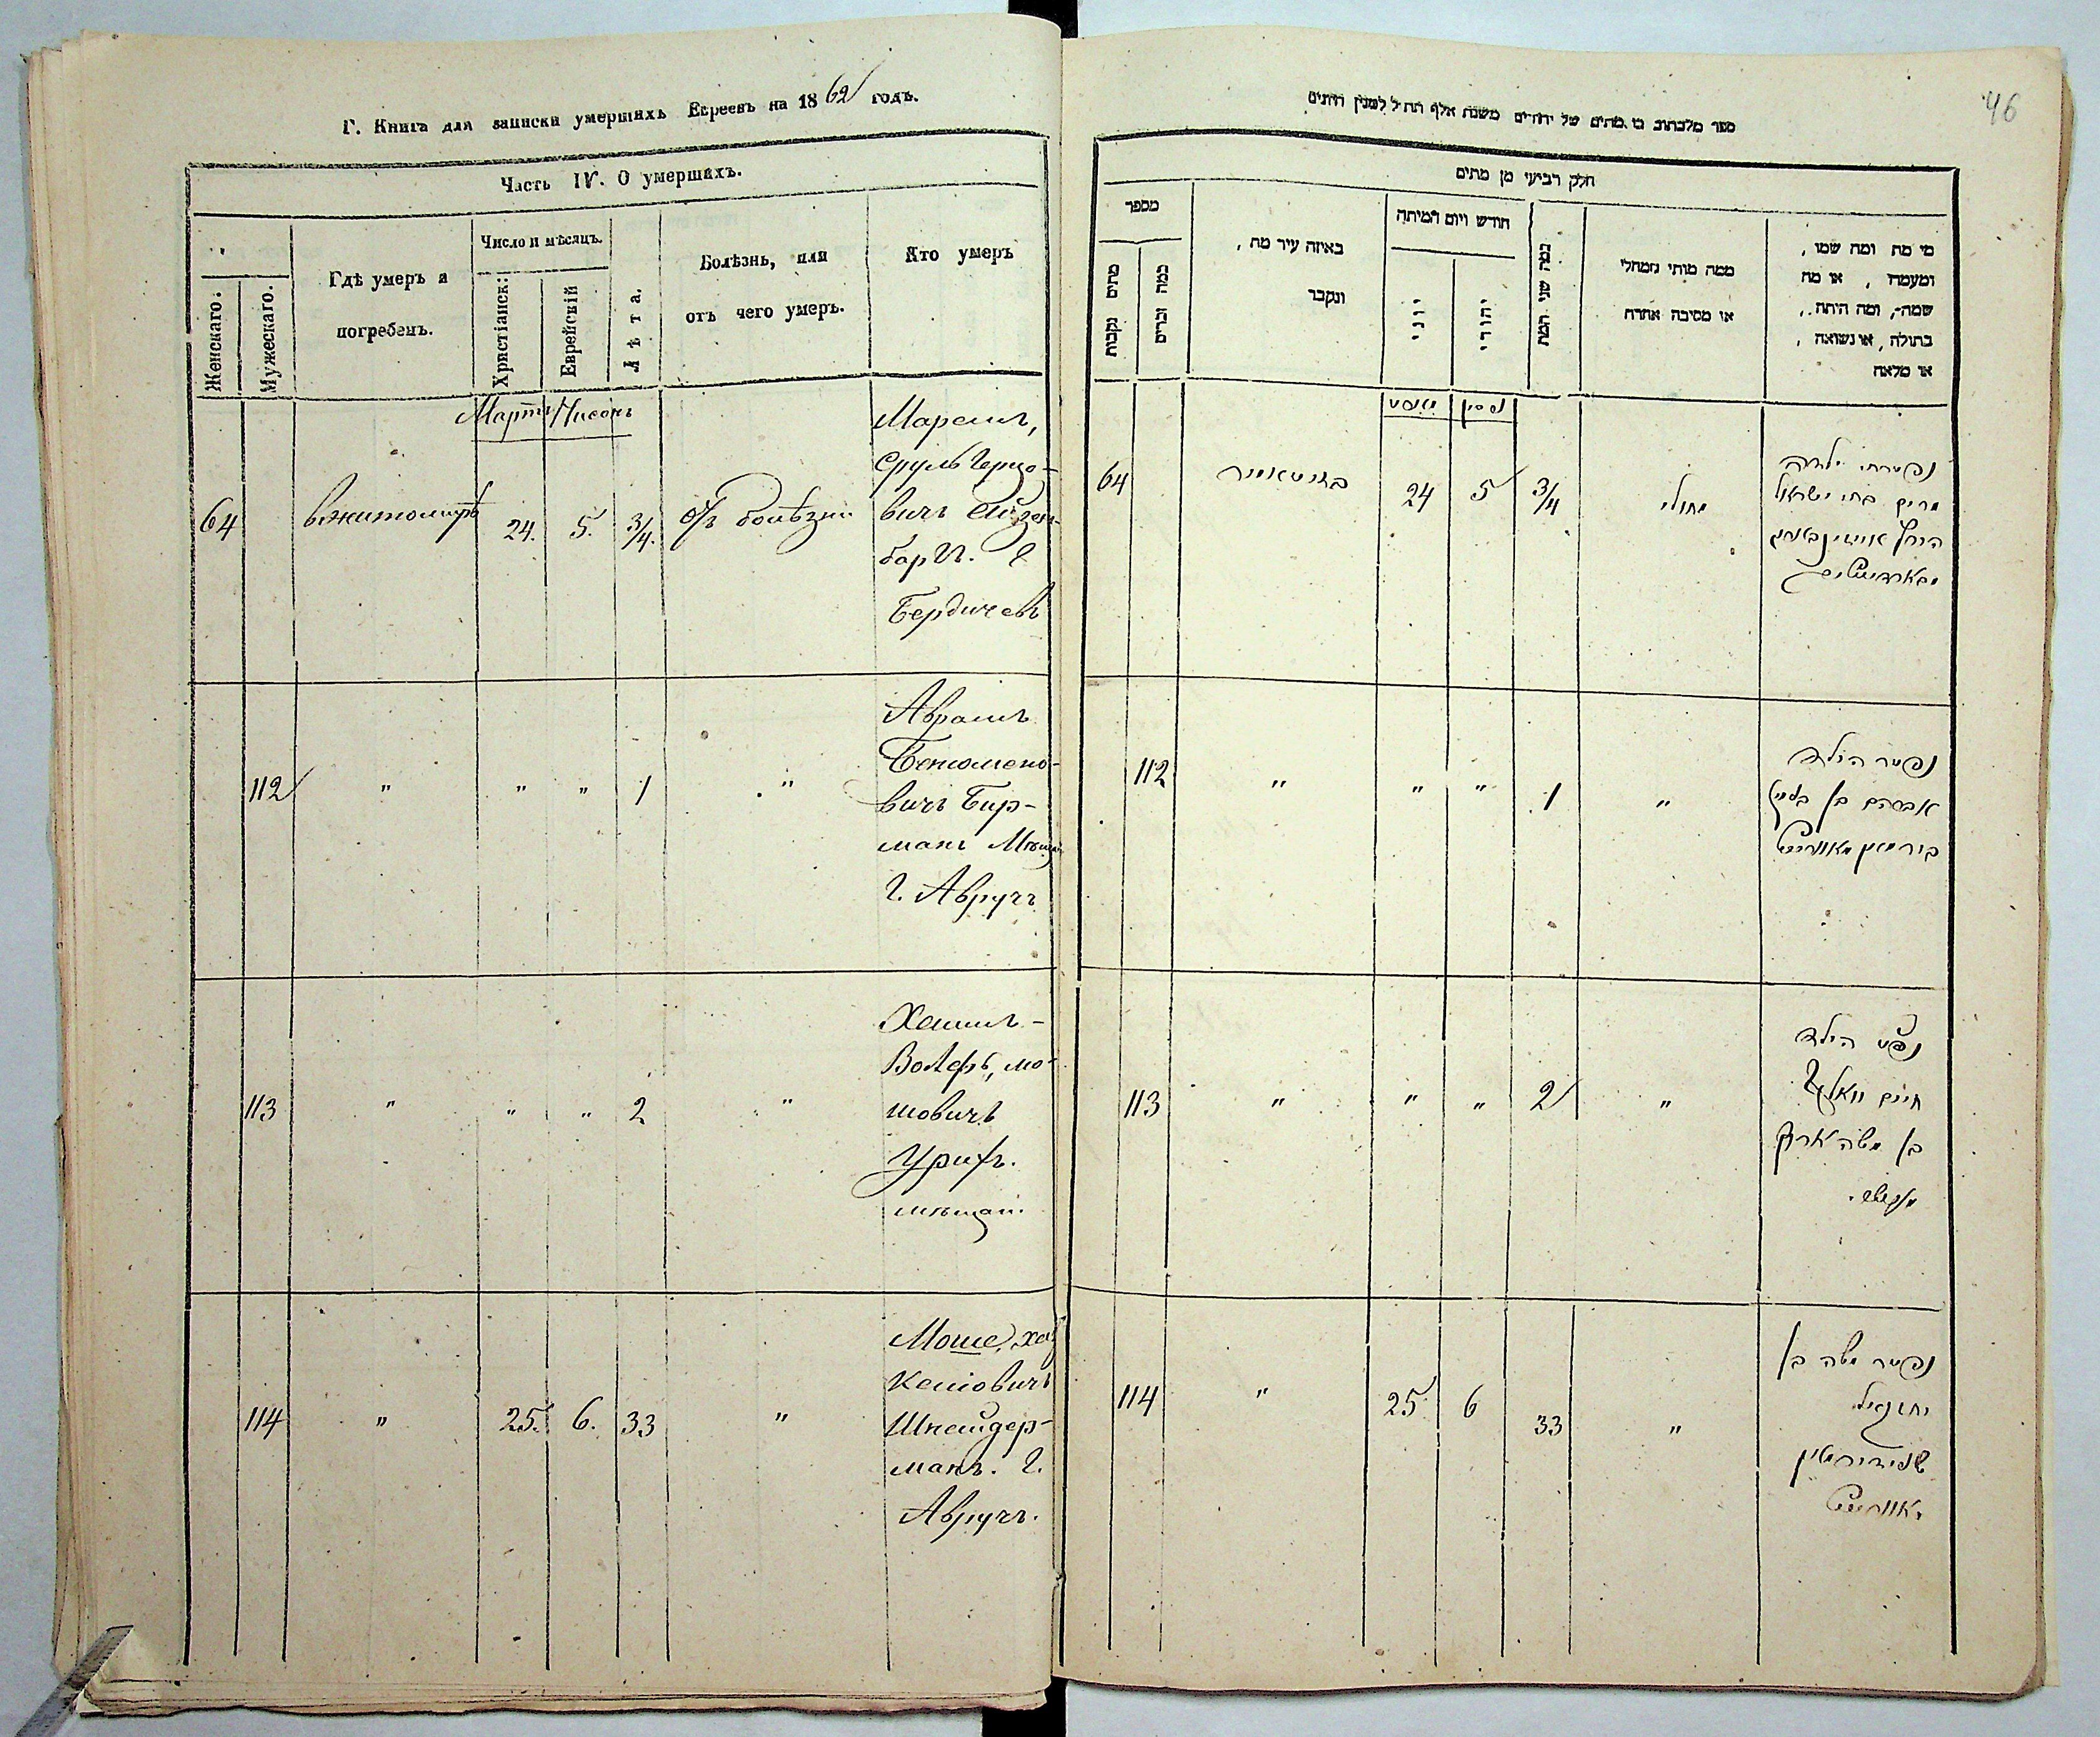 Г. Книга для записки умершихъ Евреевъ на 1862 годъ.
Часть IV. О умершахъ.
Женскаго.
Мужескаго.
Гдѣ умеръ и
погребенъ.
Число и мѣсяцъ.
Христіанск:
Еврейскій
Лѣта.
Болѣзнь, или
отъ чего умеръ.
Кто умеръ
Мартъ Нисонъ
64 вжитомирѣ 24. 5. 3/4. отъ болѣзни
Марсимъ,
Сруль Герцо-
вичъ Айзен-
баргъ. г
Бердичевъ
112 " " " 1 "
Аврамъ
Бенюмено-
вичъ Бир-
манъ Мѣщан
г. Авручъ
113 " " " 2 "
Хаимъ-
Волефъ, мо-
шовичъ
Урихъ.
мѣщан.
114 " 25. 6. 33 "
Моше, хас
келіовичъ
Шнейдер-
манъ. г.
Авручъ.
46
ספר מלכתוב בו מתים של יהודים משנת אלף תת"ל למנין הזתים
חלק רביעי מן מתים
מספר
מתים נקבות
כמה זכרים
באיזה עיר מת,
ונקבר
חודש ויום המיתה
יוני
יהודי
כמה שני המת
ממה מותי ממחלי
או מסיבה אחרת
מי מת ומה שמו,
ומעמדו, או מה
שמה, ומה היתה,
בתולה, או נשואה,
או מלאה
מארט ניסן
64 בזיטאמיר 24 5 3/4 מחולי
נפטרת ילדה
מרים בת ישראל
הירץ אייזינבארג
מבארדיטשוב
112 " " " 1 "
נפטר הילד
אברהם בן בנימין
בירמאן מאוורוטש
113 " " " 2 "
נפטר הילד
חיים וואלף
בן משה אריך
114 " 25 6 33 "
נפטר משה בן
יחזקאל
שניידערמאן
מאוורוטש